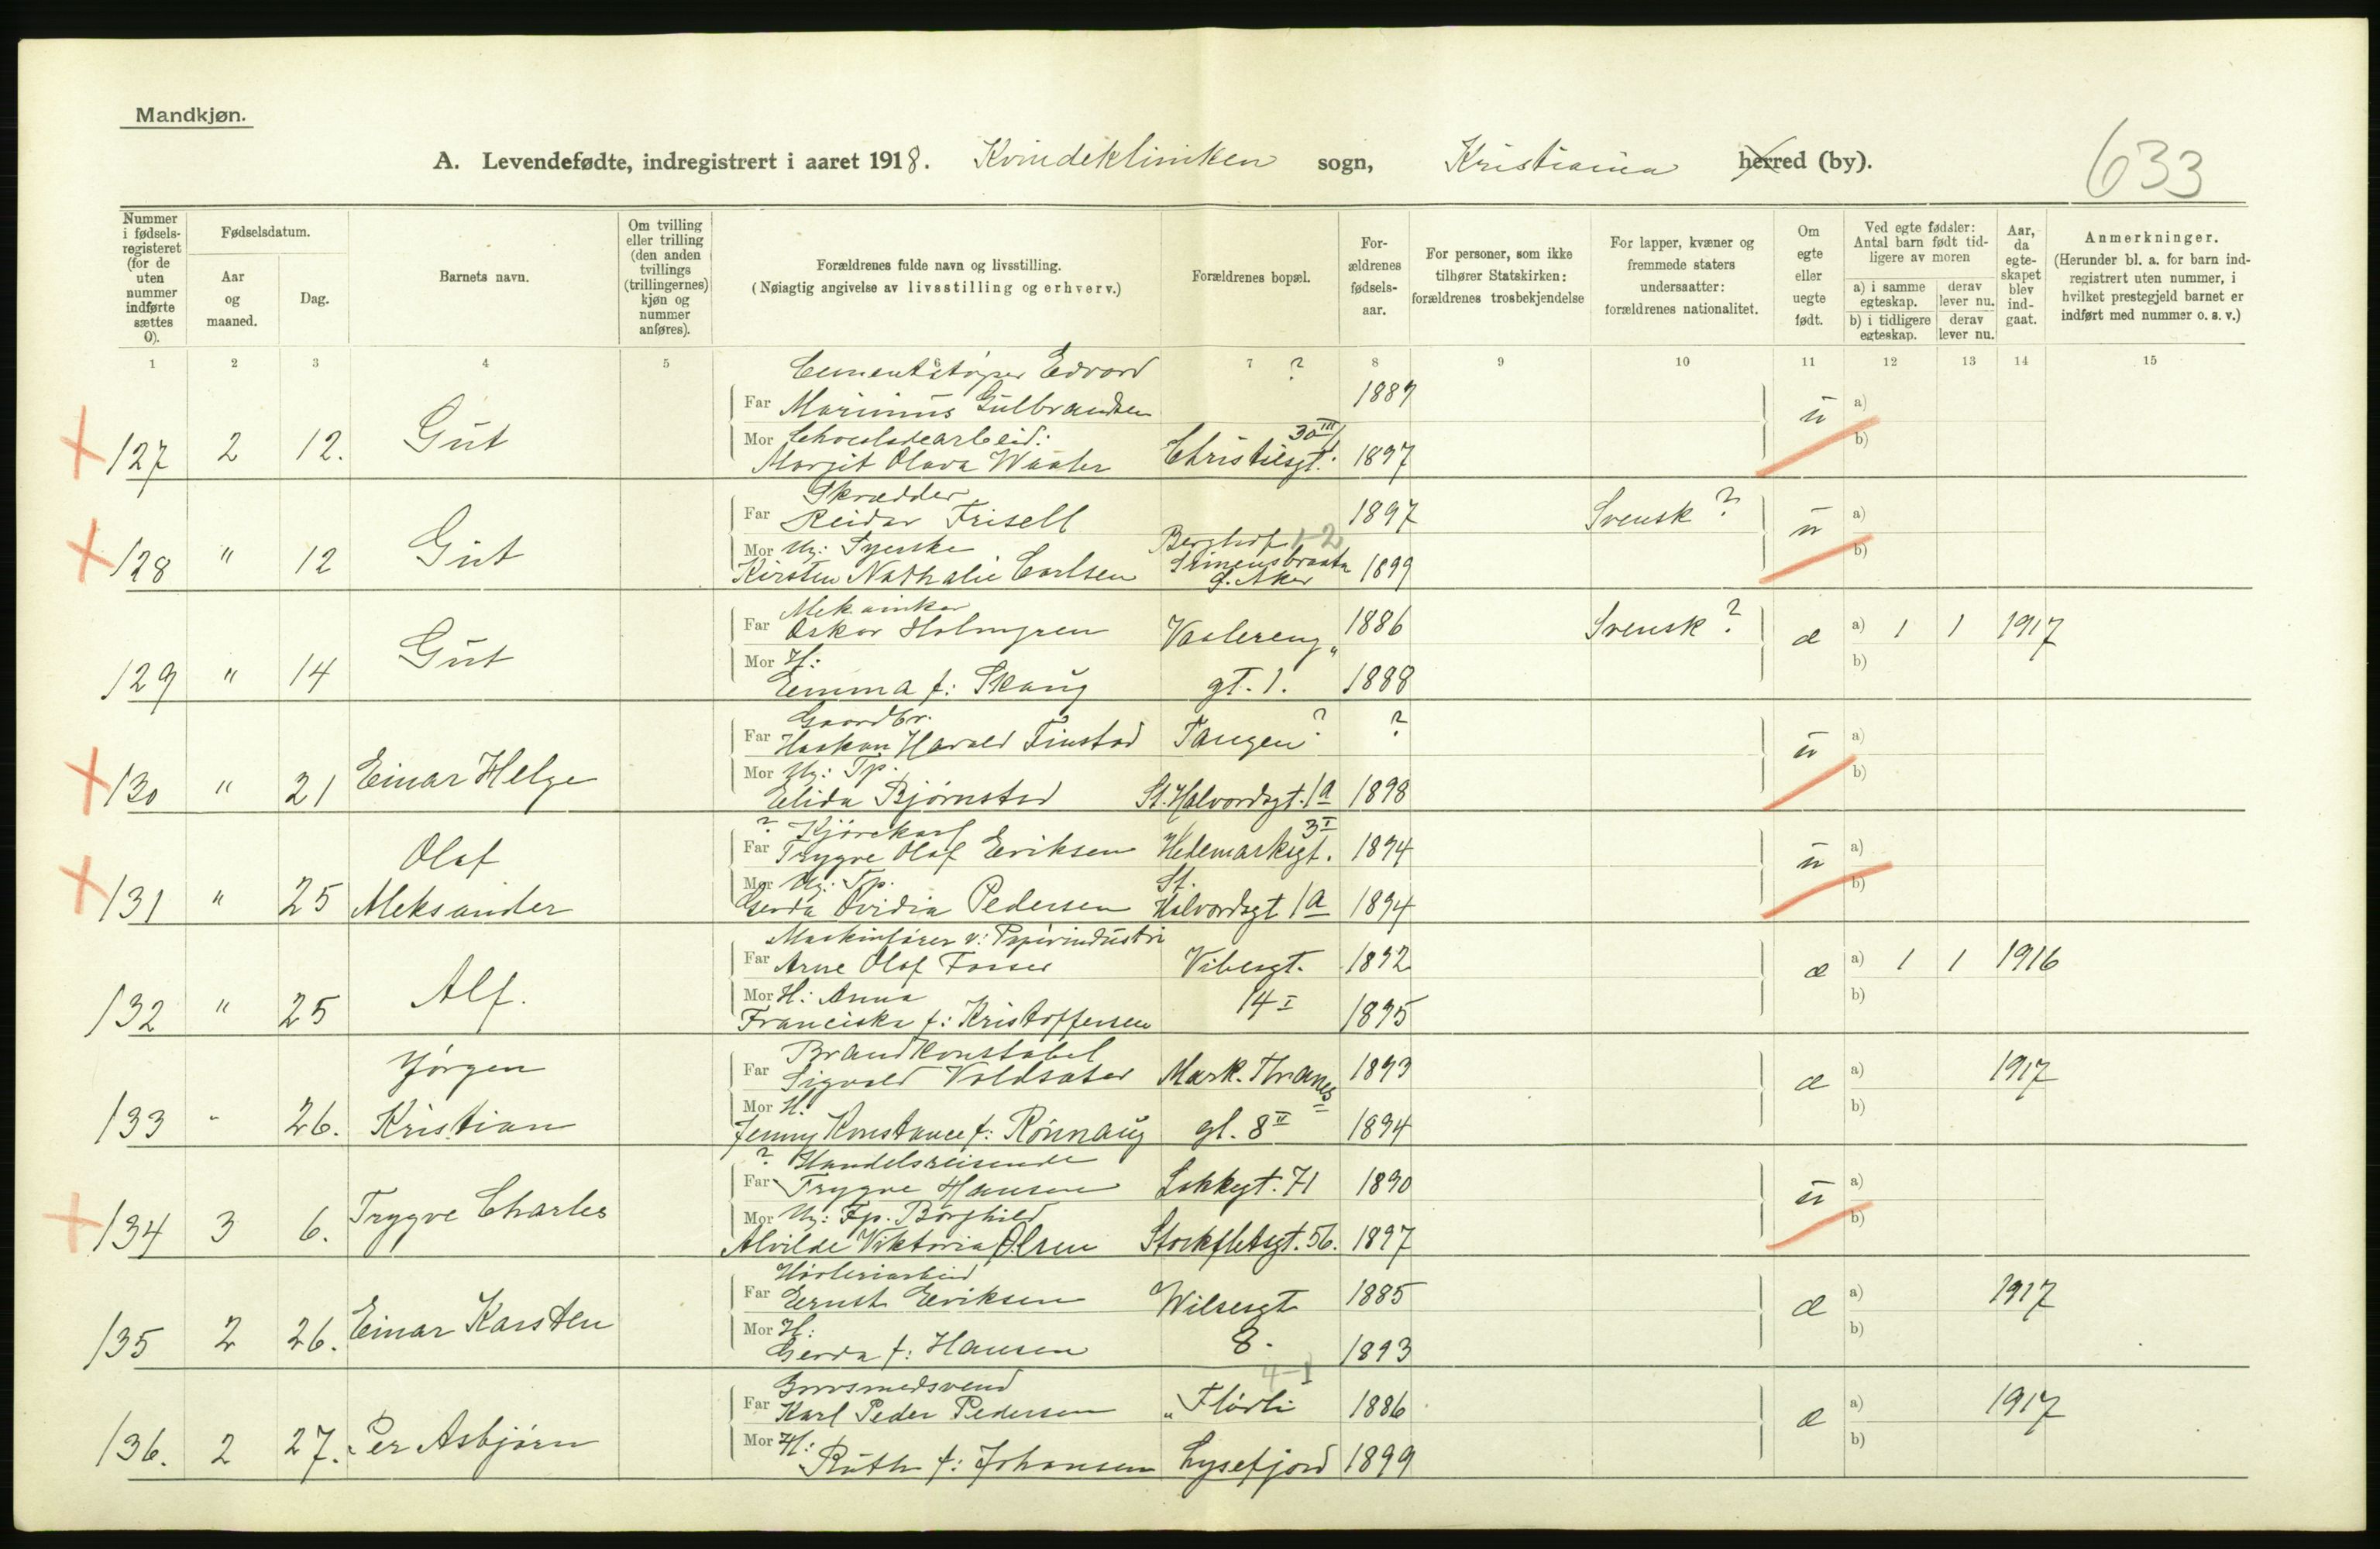 Mandkjøn.
A. Levendefødte, indregistrert i aaret 1918. Kvindekliniken sogn, Kristiania herred (by).
633
Nummer i fødsels-registeret (for de uten nummer indførte sættes 0).
Fødselsdatum.
Aar og maaned.
Dag.
Barnets navn.
Om tvilling eller trilling (den anden tvillings (trillingernes) kjøn og nummer anføres).
Forældrenes fulde navn og livsstilling.
(Nøiagtig angivelse av livsstilling og erhverv.)
Forældrenes bopæl.
For-ældrenes fødsels-aar.
For personer, som ikke tilhører Statskirken: forældrenes trosbekjendelse
For lapper, kvæner og fremmede staters undersaatter: forældrenes nationalitet.
Om egte eller uegte født.
Ved egte fødsler: Antal barn født tid-ligere av moren
a) i samme egteskap.
derav lever nu.
b) i tidligere egteskap.
derav lever nu.
Aar, da egte-skapet blev ind-gaat.
Anmerkninger.
(Herunder bl. a. for barn ind-registrert uten nummer, i hvilket prestegjeld barnet er indført med nummer o. s. v.)
1 2 3 4 5 6 7 8 9 10 11 12 13 14 15
Cementstøper Edvard ?
Far Marinius Gulbrandsen 1887
127 2 12. Gut ü a)
Mor Chocoladearbeid: 30 III b)
Margit Olava Waaler Christiesgt. 1897
Skrædder
Far Reidar Frisell 1897 Svensk ?
128 " 12 Gut ü a)
Mor Ug: Syerske Berghof 1-2 b)
Kirsten Nathalie Carlsen Simensbraata Ø. Aker 1899
Mekaniker
Far Oskar Holmgren Vaalereng 1886 Svensk ?
129 " 14 Gut æ a) 1 1 1917
Mor H: b)
Emma f: Skaug gt. 1. 1888
Gaardbr.
Far Haakon Harald Finstad Tangen ? ?
130 " 21 Einar Helge ü a)
Mor Ug: Tp. b)
Elida Bjørnstad St. Halvordsgt. 1a 1898
? Kjørekarl 3 I
Far Trygve Olaf Eriksen Hedemarksgt. 1894
131 " 25 Olaf Aleksander ü a)
Mor Ug: Tp. St. b)
Gerda Ovidia Pedersen Halvordsgt 1a 1894
Maskinfører v: Papirindustri
Far Arne Olaf Fosser Vibesgt. 1892
132 " 25 Alf. æ a) 1 1 1916
Mor H: Anna 14 I b)
Franciska f: Kristoffersen 1895
Brandkonstabel
Far Sigvald Voldsæter Mark. Thranes 1893
133 " 26. Jørgen Kristian æ a) 1917
Mor H. b)
Jenny Konstance f: Rønnaug gt. 8 II 1894
? Handelsreisende
Far Trygve Hansen Lakkegt. 71 1890
134 3 6. Trygve Charles ü a)
Mor Ug: Fp. Borghild b)
Alvilde Viktoria Olsen Stockfletsgt. 56. 1897
Høvleriarbeid
Far Ernst Eriksen Wilsesgt 1885
135 2 26. Einar Karsten æ a) 1917
Mor H: 8. b)
Gerda f: Hansen 1893
Grovsmedsvend 4-I
Far Karl Peder Pedersen "Flørli 1886
136. 2 27. Per Asbjørn æ a) 1917
Mor H: b)
Ruth f: Johansen Lysefjord 1899